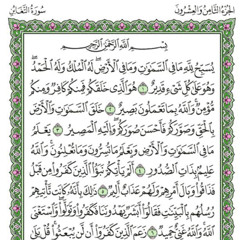 الجزء الثامن والعشرون سورة التغابن
بِسْمِ اللَّهِ الرَّحْمَٰنِ الرَّحِيمِ
يُسَبِّحُ لِلَّهِ مَا فِي السَّمَاوَاتِ وَمَا فِي الْأَرْضِ لَهُ الْمُلْكُ وَلَهُ الْحَمْدُ
وَهُوَ عَلَىٰ كُلِّ شَيْءٍ قَدِيرٌ ١ هُوَ الَّذِي خَلَقَكُمْ فَمِنكُمْ كَافِرٌ وَمِنكُم
مُّؤْمِنٌ وَاللَّهُ بِمَا تَعْمَلُونَ بَصِيرٌ ٢ خَلَقَ السَّمَاوَاتِ وَالْأَرْضَ
بِالْحَقِّ وَصَوَّرَكُمْ فَأَحْسَنَ صُوَرَكُمْ وَإِلَيْهِ الْمَصِيرُ ٣ يَعْلَمُ
مَا فِي السَّمَاوَاتِ وَالْأَرْضِ وَيَعْلَمُ مَا تُسِرُّونَ وَمَا تُعْلِنُونَ وَاللَّهُ
عَلِيمٌ بِذَاتِ الصُّدُورِ ٤ أَلَمْ يَأْتِكُمْ نَبَأُ الَّذِينَ كَفَرُوا مِن قَبْلُ
فَذَاقُوا وَبَالَ أَمْرِهِمْ وَلَهُمْ عَذَابٌ أَلِيمٌ ٥ ذَٰلِكَ بِأَنَّهُ كَانَت تَّأْتِيهِمْ
رُسُلُهُم بِالْبَيِّنَاتِ فَقَالُوا أَبَشَرٌ يَهْدُونَنَا فَكَفَرُوا وَتَوَلَّوا وَّاسْتَغْنَى
اللَّهُ وَاللَّهُ غَنِيٌّ حَمِيدٌ ٦ زَعَمَ الَّذِينَ كَفَرُوا أَن لَّن يُبْعَثُوا قُلْ بَلَىٰ